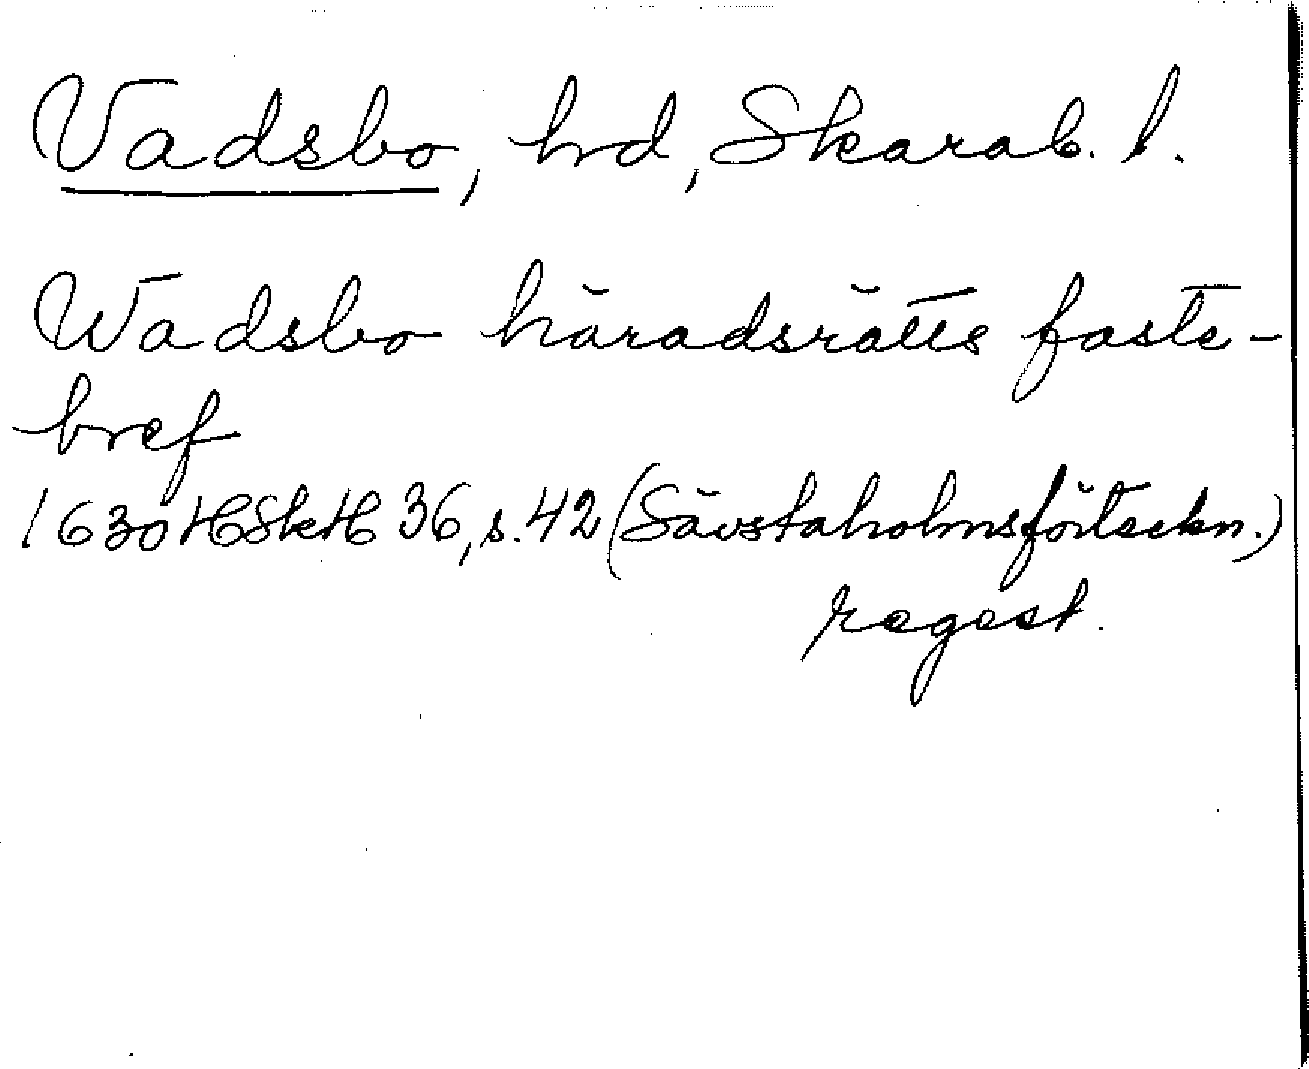 Vadsbo, hrd, Skarab. l.
Wadsbo häradsrätts faste-
bref
1630 HSkH 36, s. 42 (Sävstaholmsförteckn.)
regest.